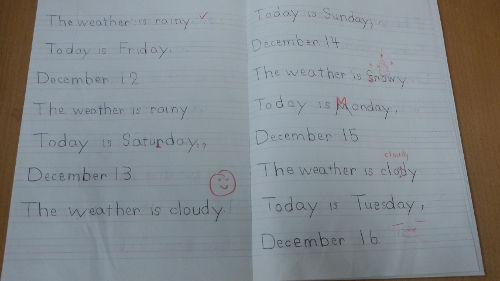 The weather is rainy.
Today is Friday.
December 12
The weather is rainy
Today is Saturday.,
December 13
The weather is cloudy.
Today is Sunday,
December 14
The weather is snowy
Today is Monday,
December 15
cloudy
The weather is clody
Today is Tuesday,
December 16